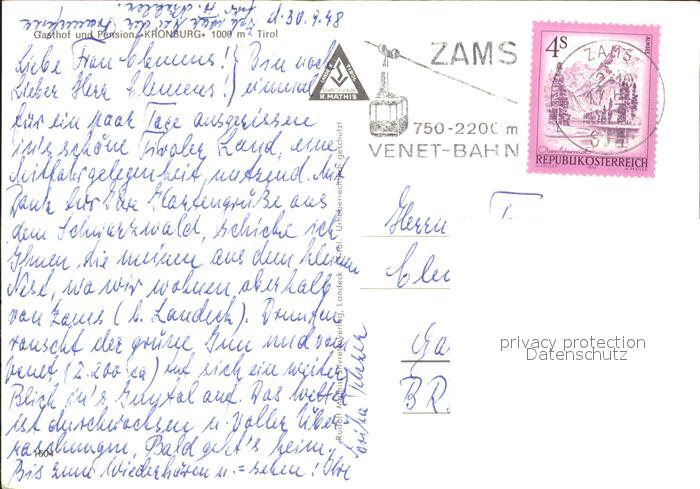 d. 30.9.48
Gasthof und Pension „KRONBURG“ 1000 m Tirol
Liebe Frau Clemens! } Bin noch
Lieber Herr Clemens! } einmal
für ein paar Tage ausgerissen
in's schöne Tiroler Land, eine
Mitfahrgelegenheit nutzend. Mit
Dank für Ihre Kartengrüße aus
dem Schwarzwald, schicke ich
Ihnen die meinen aus dem kleinen
Nest, wo wir wohnen oberhalb
von Zams (b. Landeck). Drunten
rauscht der grüne Inn und vom
Venet (2.200 ca) tut sich ein weiter
Blick in's Inntal auf. Das Wetter
ist durchwachsen u. voller Über
raschungen. Bald geht's heim,
Bis zum Wiederhören u. = sehen! Ihre
1504
R. MATHIS
Landeck Tirol. Urheberrechtlich geschützt
ZAMS
750-2200 m
VENET-BAHN
ZAMS
4S
REPUBLIK ÖSTERREICH
Herrn
Cle
Ga
BR
privacy protection
Datenschutz